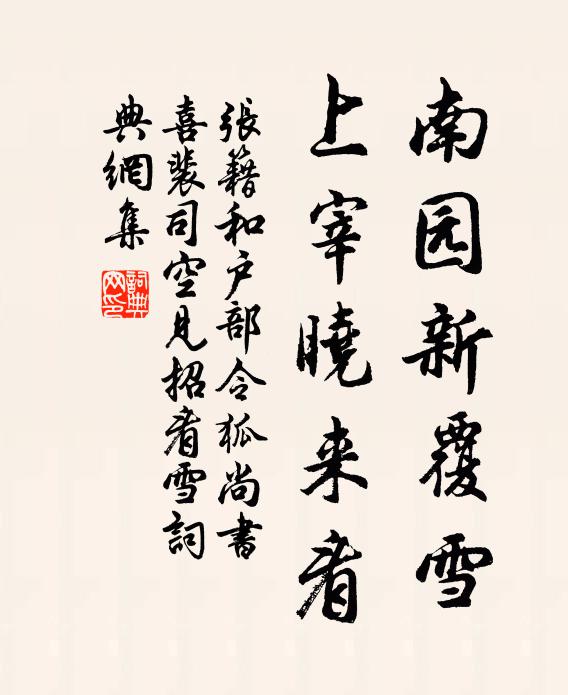 南园新覆雪
上宰曉来看
張籍和戶部令狐尚書
喜裴司空見招看雪詞
典網集
詞典网印